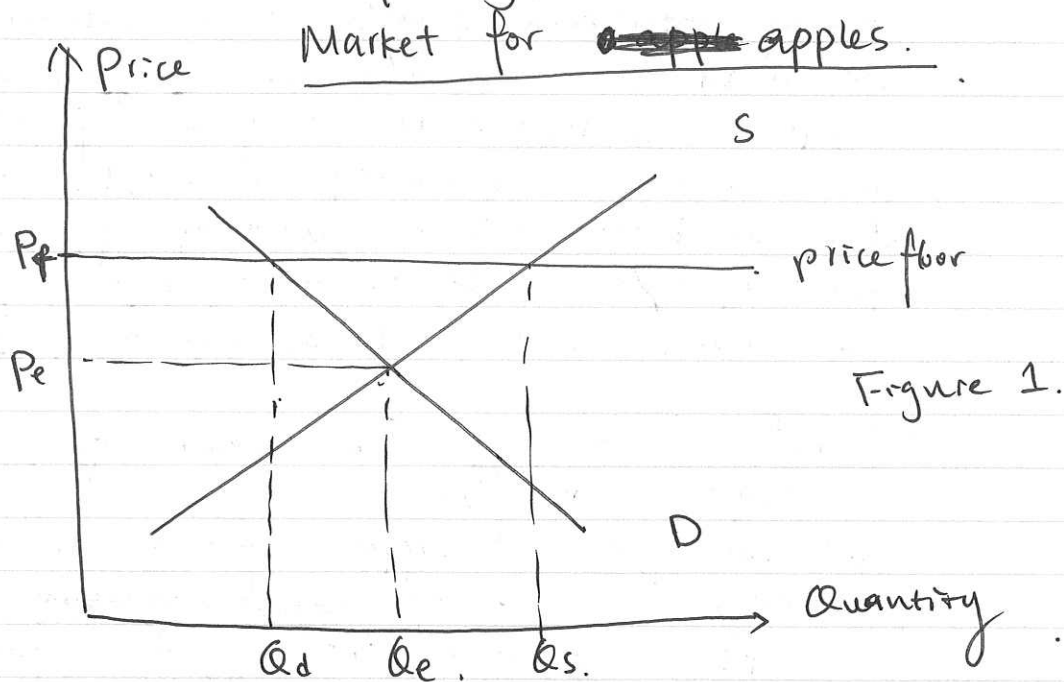 Market for apples.
Price
S
Pf
price floor
Pe
Figure 1.
D
Quantity
Qd Qe. Qs.